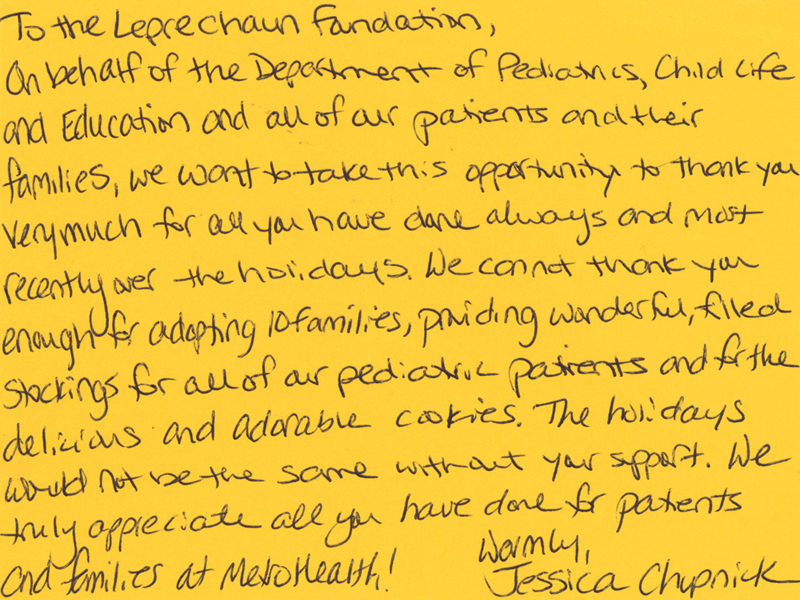 To the Leprechaun Foundation,
On behalf of the Department of Pediatrics, Child Life
and Education and all of our patients and their
families, we want to take this opportunity to thank you
very much for all you have done always and most
recently over the holidays. We cannot thank you
enough for adopting 10 families, providing wonderful, filled
stockings for all of our pediatric patients and for the
delicious and adorable cookies. The holidays
would not be the same without your support. We
truly appreciate all you have done for patients
and families at MetroHealth!
Warmly,
Jessica Chupnick